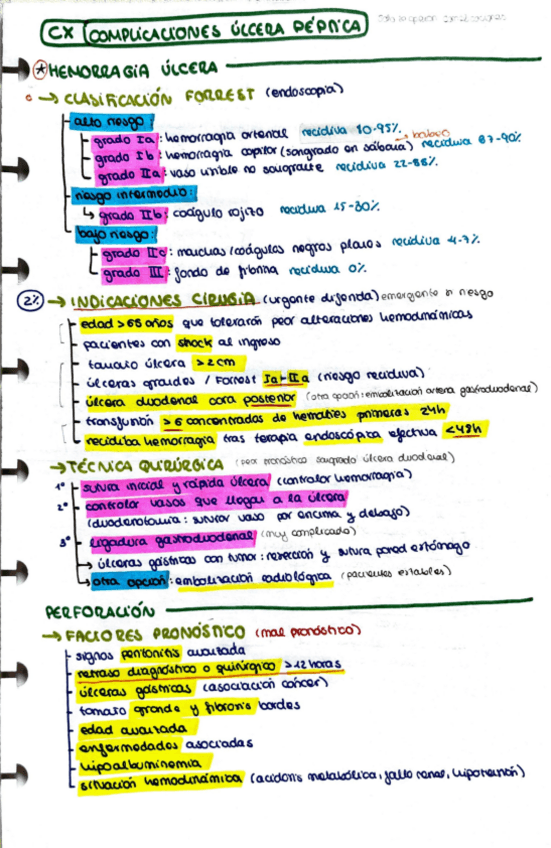 CX COMPLICACIONES ÚLCERA PÉPTICA
HEMORRAGIA ÚLCERA
→ CLASIFICACIÓN FORREST (endoscopia)
alto riesgo:
grado Ia: hemorragia arterial recidiva 10-95%
→ babeo
grado Ib: hemorragia capilar (sangrado en sábana) recidiva 67-90%
grado IIa: vaso visible no sangrante recidiva 22-88%
riesgo intermedio:
↳ grado IIb: coágulo rojizo recidiva 15-30%
bajo riesgo:
grado IIc: manchas/coágulos negros planos recidiva 4-7%
grado III: fondo de fibrina recidiva 0%
2% → INDICACIONES CIRUGÍA (urgente diferida) emergente si riesgo
edad > 65 años que tolerarán peor alteraciones hemodinámicas
pacientes con shock al ingreso
tamaño úlcera > 2 cm
úlceras grandes / Forrest Ia-IIa (riesgo recidiva)
úlcera duodenal cara posterior (otra opción: embolización arteria gastroduodenal)
transfusión > 6 concentrados de hematíes primeras 24h
recidiba hemorragia tras terapia endoscópica efectiva < 48h
→ TÉCNICA QUIRÚRGICA (peor pronóstico sangrado úlcera duodenal)
1º sutura inicial y rápida úlcera (controlar hemorragia)
2º controlar vasos que llegan a la úlcera
(duodenotomía: suturar vaso por encima y debajo)
3º ligadura gastroduodenal (muy complicado)
→ úlceras gástricas con tumor: resección y sutura pared estómago
→ otra opción: embolización radiológica (pacientes estables)
PERFORACIÓN
→ FACTORES PRONÓSTICO (mal pronóstico)
signos peritonitis avanzada
retraso diagnóstico o quirúrgico > 12 horas
úlceras gástricas (asociación cáncer)
tamaño grande y fibrosis bordes
edad avanzada
enfermedades asociadas
hipoalbuminemia
situación hemodinámica (acidosis metabólica, fallo renal, hipotensión)